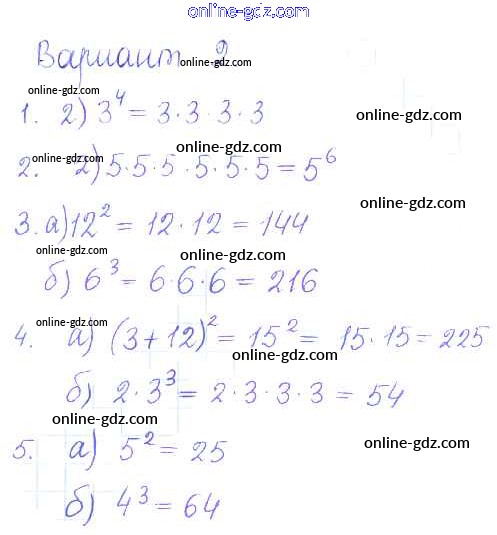 online-gdz.com
Вариант 2
online-gdz.com
1. 2) 3⁴ = 3·3·3·3
online-gdz.com
online-gdz.com
online-gdz.com
online-gdz.com
2. 2) 5·5·5·5·5·5 = 5⁶
online-gdz.com
3. а) 12² = 12·12 = 144
online-gdz.com
online-gdz.com
б) 6³ = 6·6·6 = 216
online-gdz.com
online-gdz.com
4. а) (3+12)² = 15² = 15·15 = 225
online-gdz.com
б) 2·3³ = 2·3·3·3 = 54
online-gdz.com
online-gdz.com
5. а) 5² = 25
б) 4³ = 64